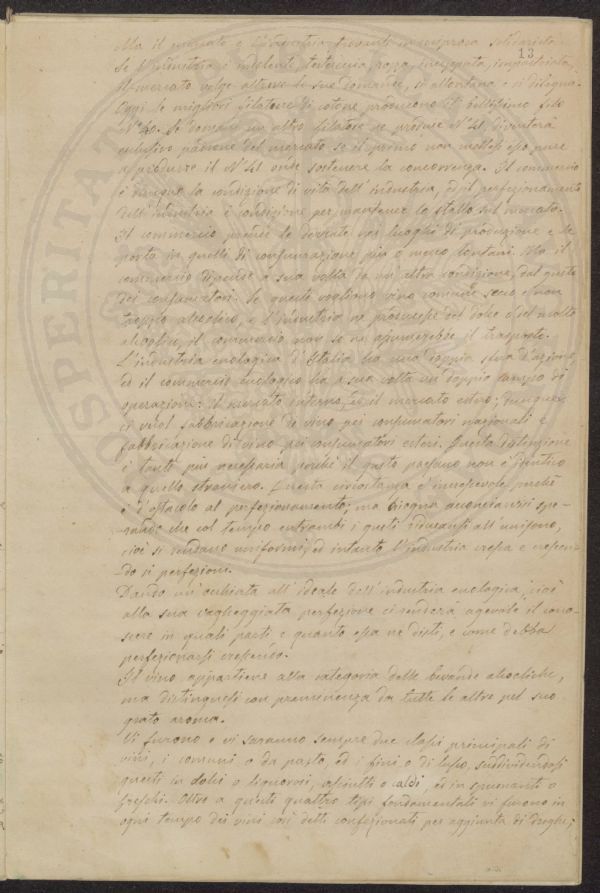 13
Ma il mercato e l'industria trovansi in reciproca solidarietà.
Se l'industria è indolente, rozza, inceppata, impacciata,
il mercato volge altrove le sue domande, si allontana e si dilegua.
Oggi le migliori filature di cotone producono il bellissimo filo
N° 40. Se domani un altro filatore ne produce N° 41, diventerà
esclusivo padrone del mercato se il primo non mettesi esso pure
a produrre il N° 41 onde sostenere la concorrenza. Il commercio
è dunque la condizione di vita dell'industria, ed il perfezionamento
dell'industria è condizione per mantenere lo stallo sul mercato.
Il commercio prende le derrate nei luoghi di produzione e le
porta in quelli di consumazione più o meno lontani. Ma il
commercio dipende a sua volta da un'altra condizione, dal gusto
dei consumatori. Se questi vogliono vino comune secco e non
troppo alcoolico, e l'industria ne producesse del dolce e del molto
alcoolico, il commercio non se ne assumerebbe il trasporto.
L'industria enologica d'Italia ha una doppia sfera d'azione,
ed il commercio enologico ha a sua volta un doppio campo di
operazione: il mercato interno, ed il mercato estero; dunque
ci vuol fabbricazione di vino pei consumatori nazionali e
fabbricazione di vino pei consumatori esteri. Questa distinzione
è tanto più necessaria perchè il gusto paesano non è identico
a quello straniero. Questa circostanza è increscevole perchè
è d'ostacolo al perfezionamento; ma bisogna acconciarvisi spe-
rando che col tempo entrambi i gusti riducansi all'unisono,
cioè si rendano uniformi, ed intanto l'industria cresca e crescen-
do si perfezioni.
Dando un'occhiata all'ideale dell'industria enologica, cioè
alla sua vagheggiata perfezione ci renderà agevole il cono-
scere in quali parti e quanto essa ne disti, e come debba
perfezionarsi crescendo.
Il vino appartiene alla categoria delle bevande alcooliche,
ma distinguesi con preminenza da tutte le altre pel suo
grato aroma.
Vi furono e vi saranno sempre due classi principali di
vini, i comuni o da pasto, ed i fini o di lusso, suddividendosi
questi in dolci o liquorosi, asciutti o caldi, ed in spumanti o
freschi. Oltre a questi quattro tipi fondamentali vi furono in
ogni tempo dei vini così detti confezionati per aggiunta di droghe;